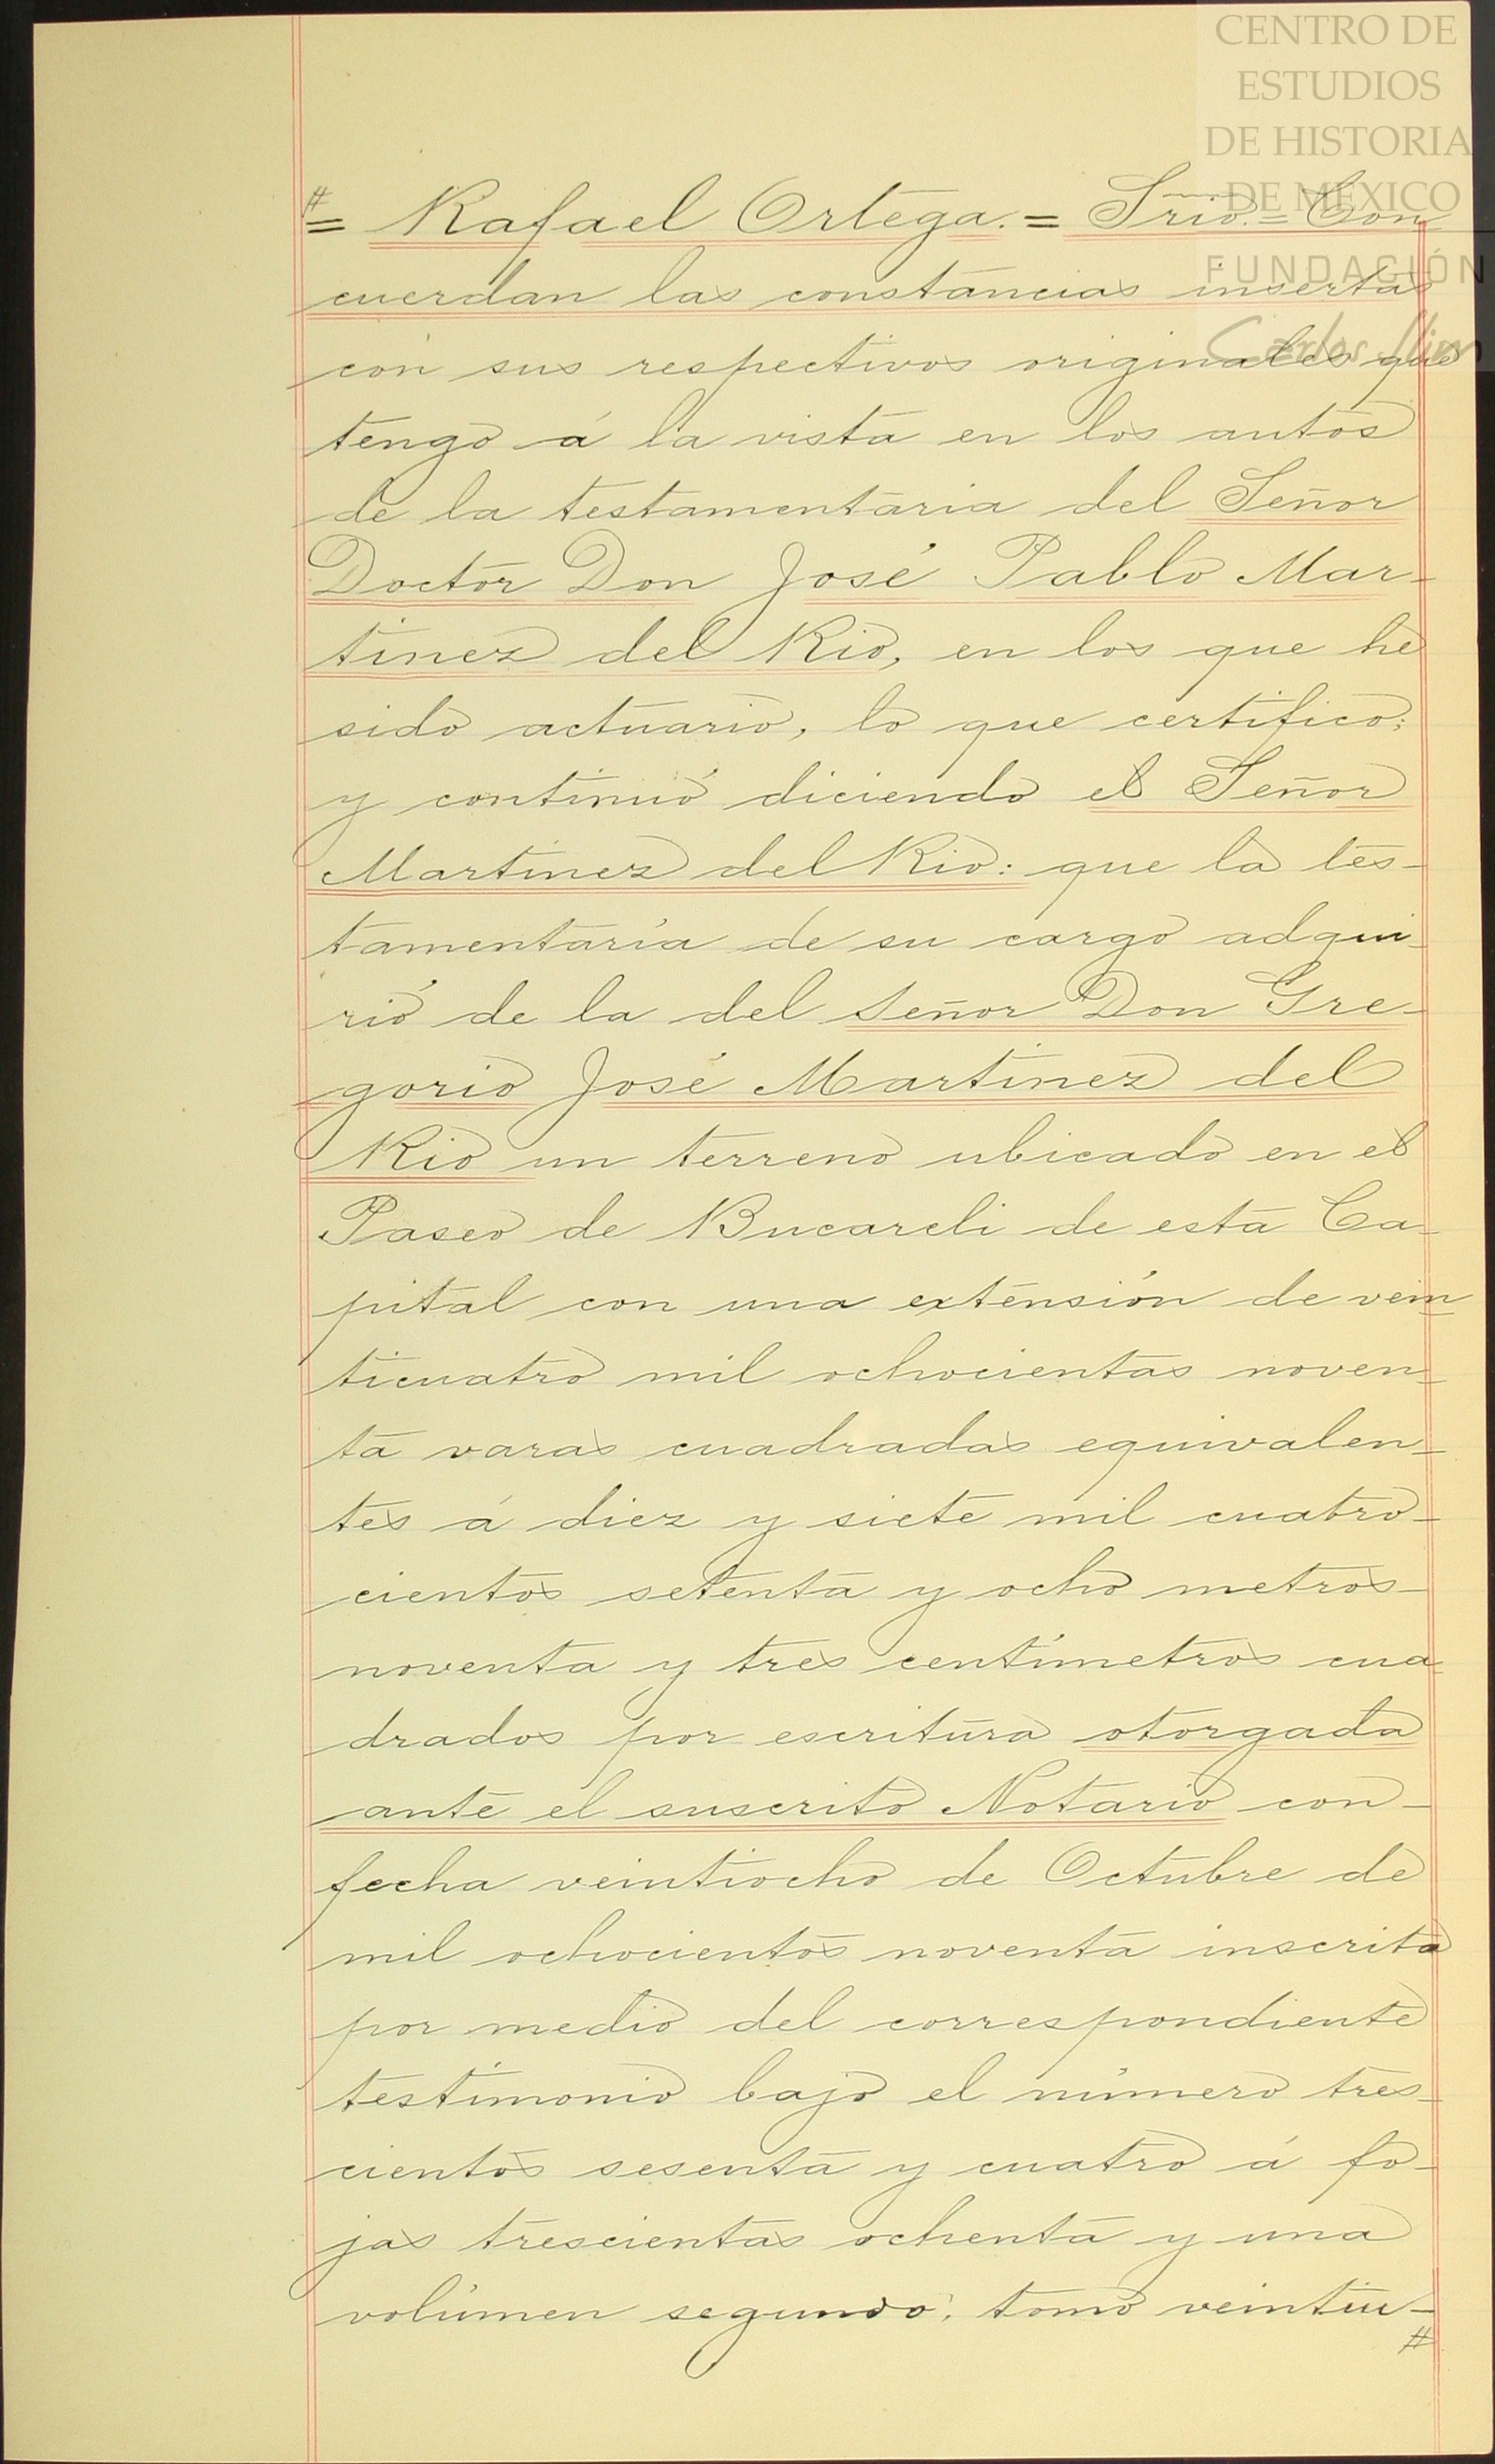 CENTRO DE
ESTUDIOS
DE HISTORIA
DE MÉXICO
FUNDACIÓN
Carlos Slim
#
= Rafael Ortega. = Srio. = Con
cuerdan las constancias insertas
con sus respectivos originales que
tengo á la vista en los autos
de la testamentaria del Señor
Doctor Don José Pablo Mar-
tinez del Rio, en los que he
sido actuario, lo que certifico;
y continuó diciendo el Señor
Martinez del Rio: que la tes-
tamentaría de su cargo adqui-
rió de la del Señor Don Gre-
gorio José Martinez del
Rio un terreno ubicado en el
Paseo de Bucareli de esta Ca-
pital con una extensión de vein
ticuatro mil ochocientas noven-
ta varas cuadradas equivalen-
tes á diez y siete mil cuatro-
cientos setenta y ocho metros
noventa y tres centímetros cua
drados por escritura otorgada
ante el suscrito Notario con
fecha veintiocho de Octubre de
mil ochocientos noventa inscrita
por medio del correspondiente
testimonio bajo el número tres-
cientos sesenta y cuatro á fo-
jas trescientas ochenta y una
volúmen segundo, tomo veintiu-
#